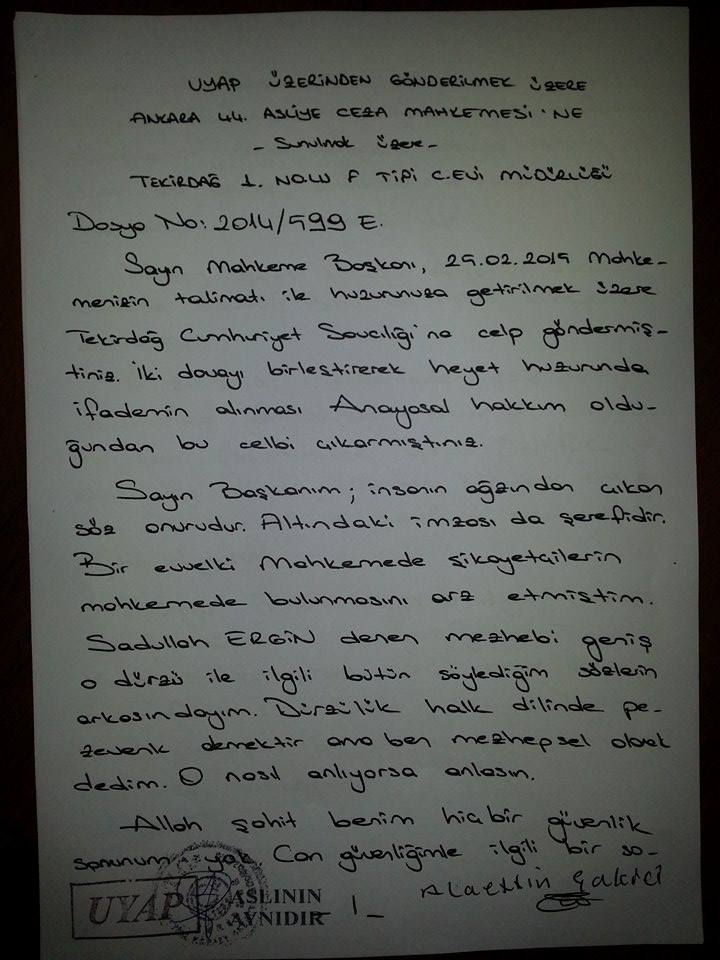 UYAP ÜZERİNDEN GÖNDERİLMEK ÜZERE
ANKARA 44. ASLİYE CEZA MAHKEMESİ'NE
- Sunulmak üzere -
TEKİRDAĞ 1. NOLU F TİPİ C.EVİ MÜDÜRLÜĞÜ
Dosya No: 2014/599 E.
Sayın Mahkeme Başkanı, 25.02.2015 Mahke-
menizin talimatı ile huzurunuza getirilmek üzere
Tekirdağ Cumhuriyet Savcılığı'na celp göndermiş-
tiniz. İki davayı birleştirerek heyet huzurunda
ifademin alınması Anayasal hakkım oldu-
ğundan bu celbi çıkarmıştınız.
Sayın Başkanım; insanın ağzından çıkan
söz onurudur. Altındaki imzası da şerefidir.
Bir evvelki Mahkemede şikayetçilerin
mahkemede bulunmasını arz etmiştim.
Sadullah ERGİN denen mezhebi geniş
o dürzü ile ilgili bütün söylediğim sözlerin
arkasındayım. Dürzülük halk dilinde pe-
zevenk demektir ama ben mezhepsel olarak
dedim. O nasıl anlıyorsa anlasın.
Allah şahit benim hiçbir güvenlik
sorunum yok. Can güvenliğimle ilgili bir so-
Alaettin Çakıcı
UYAP ASLININ
AYNIDIR
- 1 -